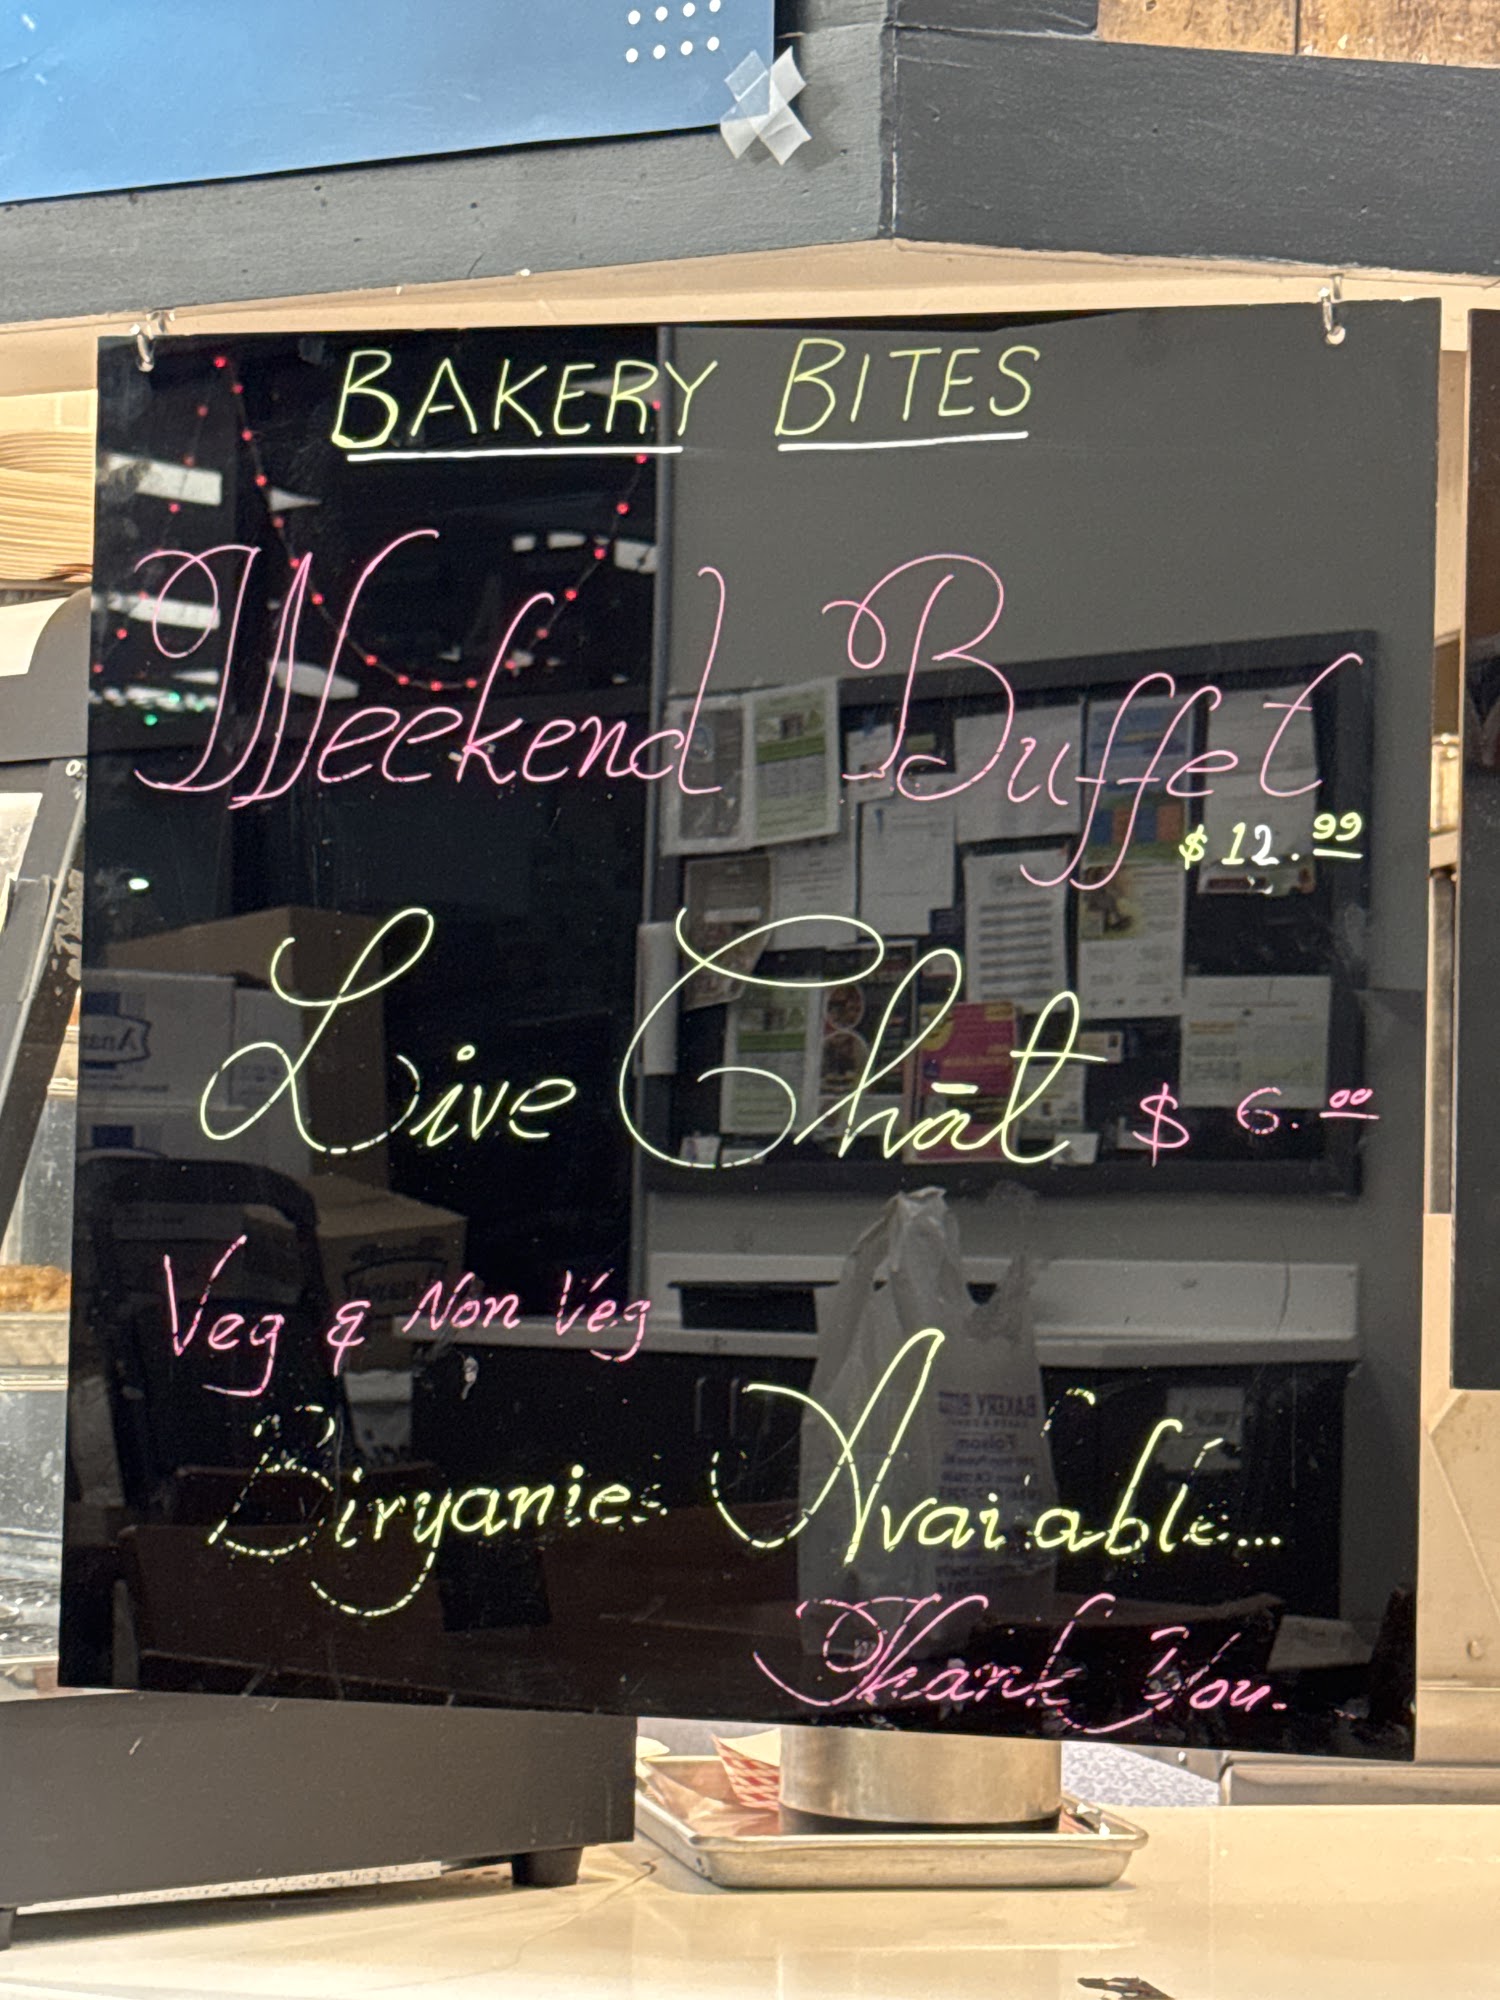 BAKERY BITES
Weekend Buffet
$ 12.99
Live Chāt $ 6.00
Veg & Non Veg
Biryanies Available...
Thank You.